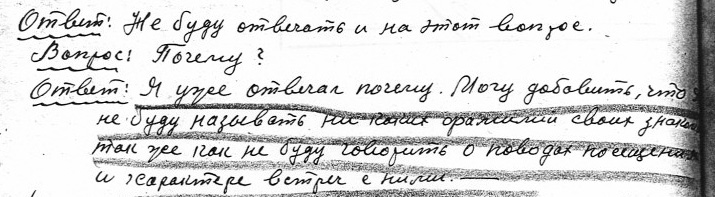 Ответ: Не буду отвечать и на этот вопрос.
Вопрос: Почему?
Ответ: Я уже отвечал почему. Могу добавить, что я
не буду называть ни каких фамилий своих знаком
так же как не буду говорить о поводах посещения
и характере встреч с ними. —